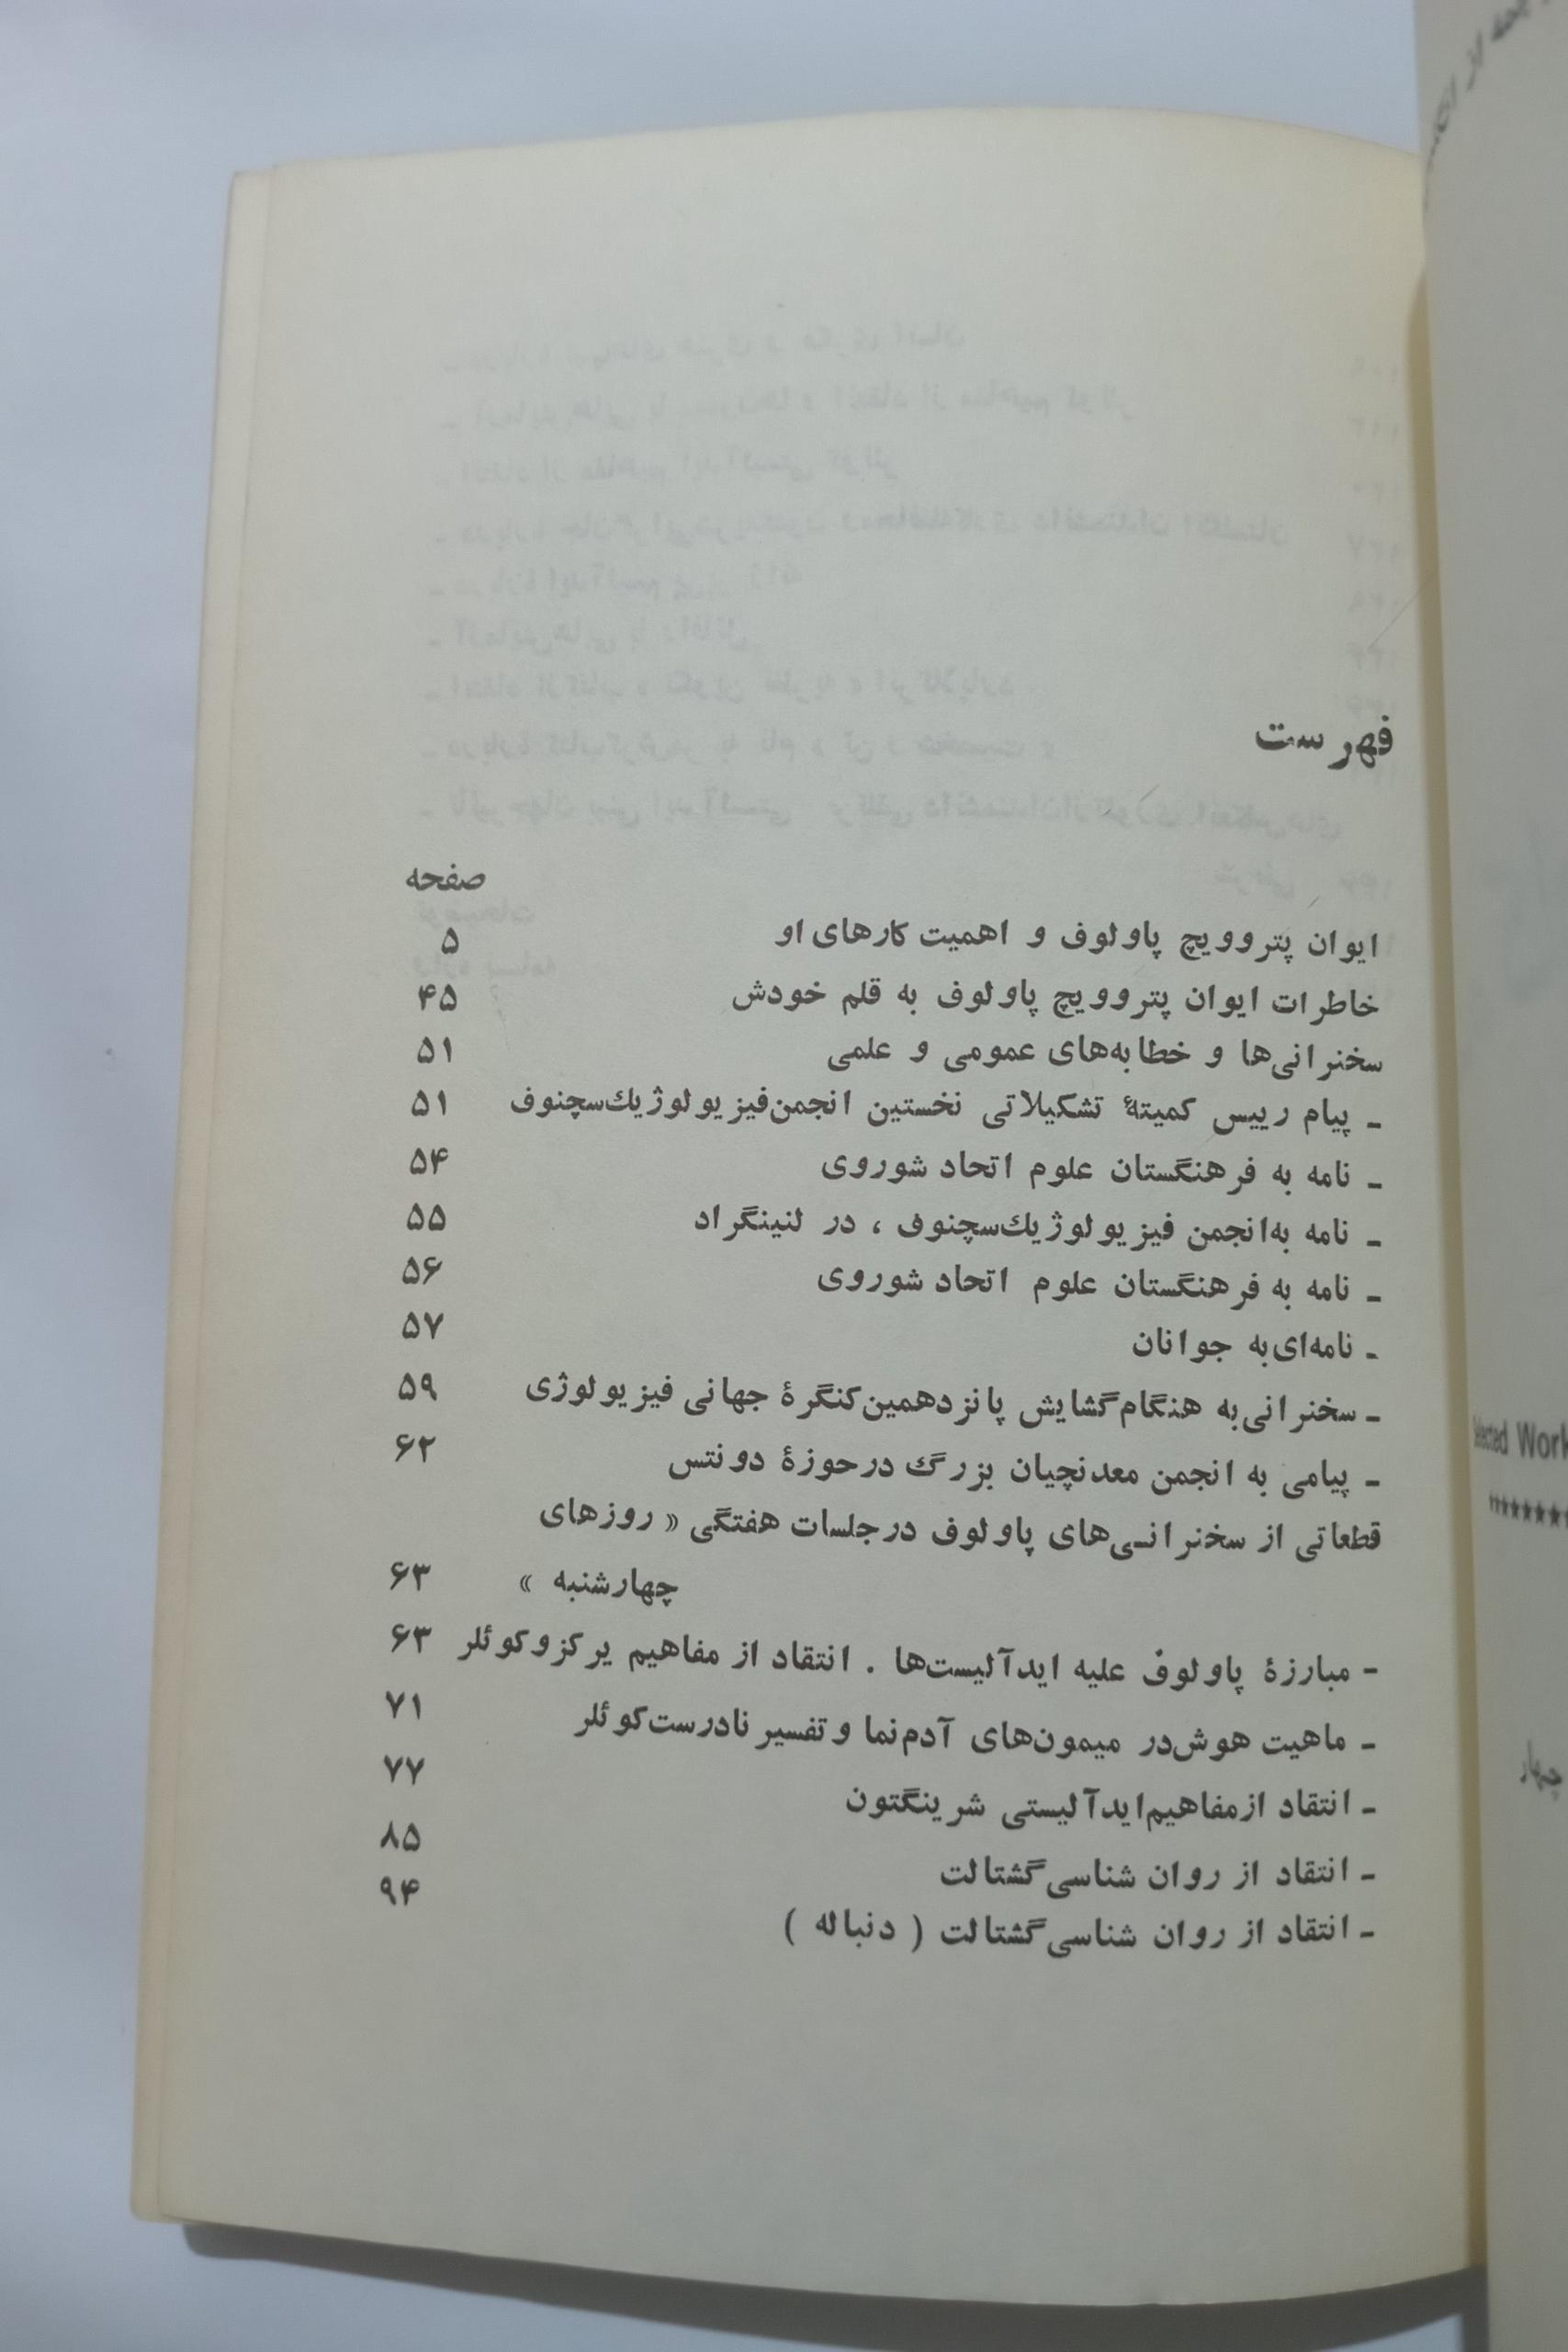 فهرست
صفحه
ایوان پتروویچ پاولوف و اهمیت کارهای او ۵
خاطرات ایوان پتروویچ پاولوف به قلم خودش ۴۵
سخنرانی‌ها و خطابه‌های عمومی و علمی ۵۱
ـ پیام رییس کمیتهٔ تشکیلاتی نخستین انجمن فیزیولوژیك سچنوف ۵۱
ـ نامه به فرهنگستان علوم اتحاد شوروی ۵۴
ـ نامه به انجمن فیزیولوژیك سچنوف ، در لنینگراد ۵۵
ـ نامه به فرهنگستان علوم اتحاد شوروی ۵۶
ـ نامه‌ای به جوانان ۵۷
ـ سخنرانی به هنگام گشایش پانزدهمین کنگرهٔ جهانی فیزیولوژی ۵۹
ـ پیامی به انجمن معدنچیان بزرگ در حوزهٔ دونتس ۶۲
قطعاتی از سخنرانی‌های پاولوف در جلسات هفتگی « روزهای
چهارشنبه » ۶۳
ـ مبارزهٔ پاولوف علیه ایدآلیست‌ها . انتقاد از مفاهیم یرکز و کوئلر ۶۳
ـ ماهیت هوش در میمون‌های آدم‌نما و تفسیر نادرست کوئلر ۷۱
ـ انتقاد از مفاهیم ایدآلیستی شرینگتون ۷۷
ـ انتقاد از روان شناسی گشتالت ۸۵
ـ انتقاد از روان شناسی گشتالت ( دنباله ) ۹۴
Selected Work
چهار